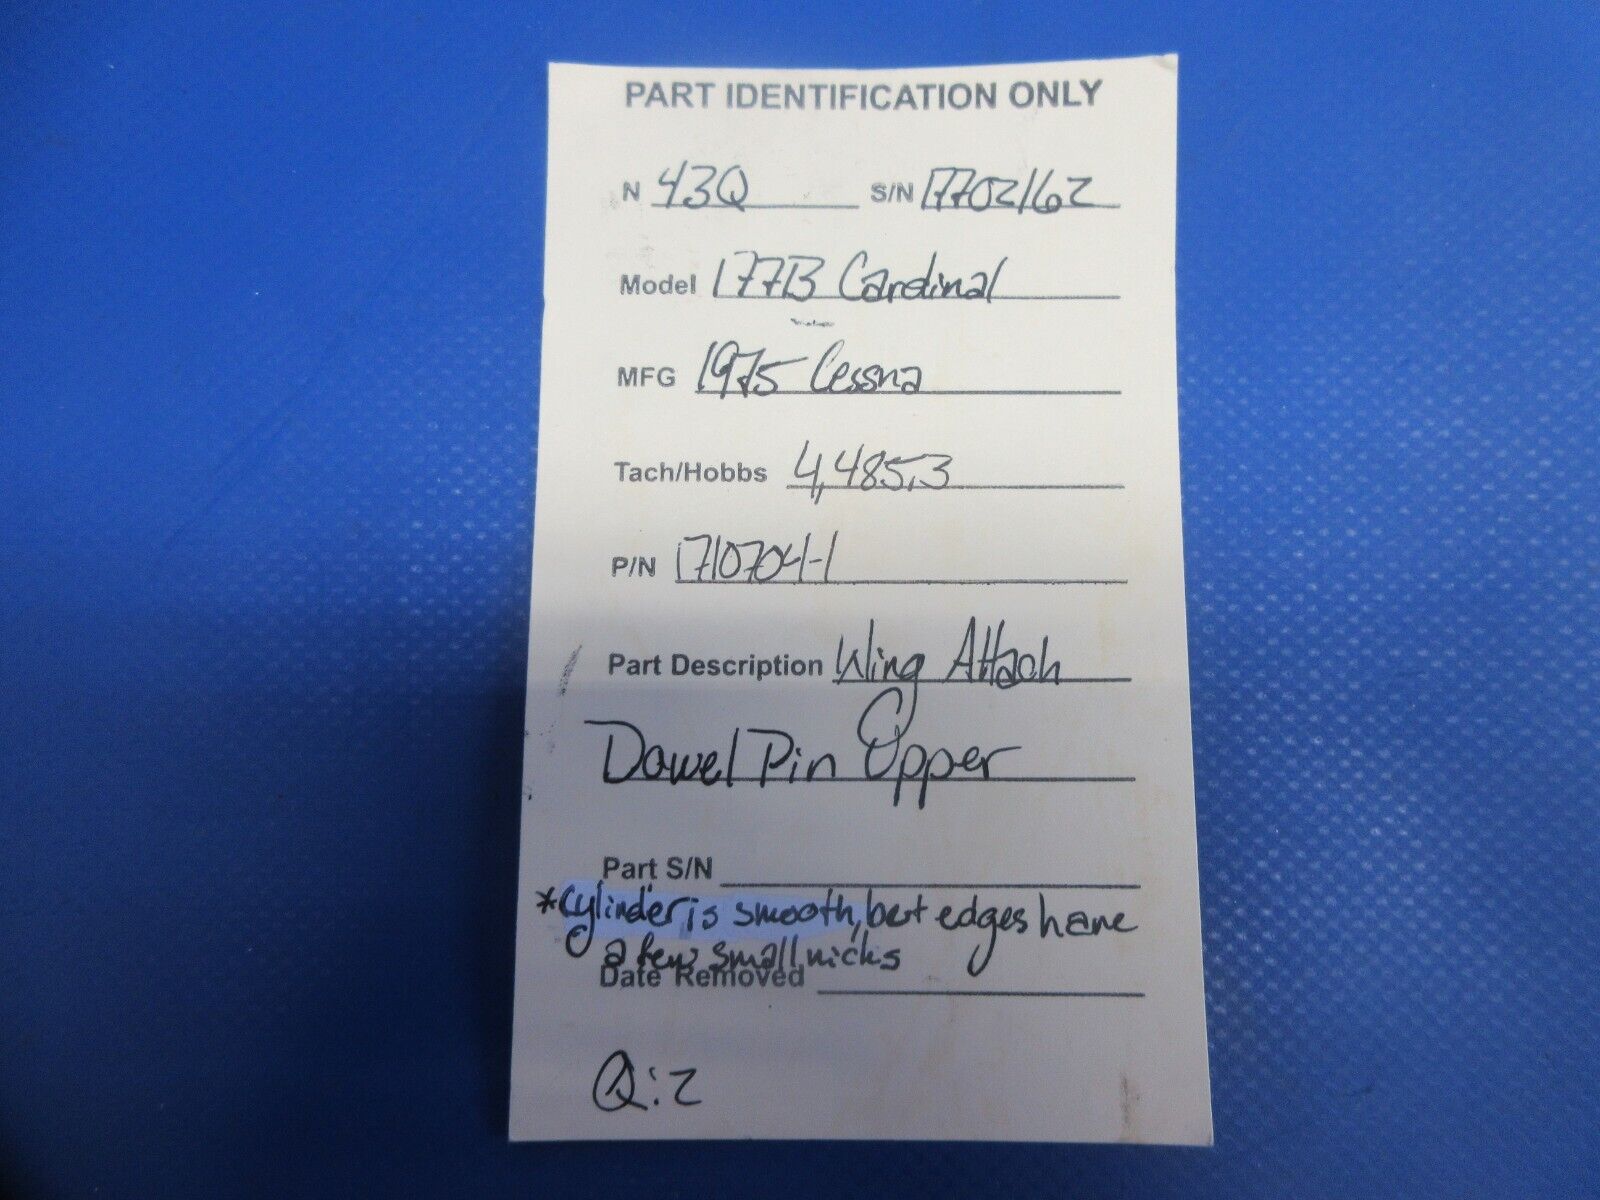 PART IDENTIFICATION ONLY
N 43Q S/N 17702162
Model 177B Cardinal
MFG 1975 Cessna
Tach/Hobbs 4,485.3
P/N 1710704-1
Part Description Wing Attach
Dowel Pin Upper
Part S/N
*Cylinder is smooth, but edges have
a few small nicks
Date Removed
Q:2